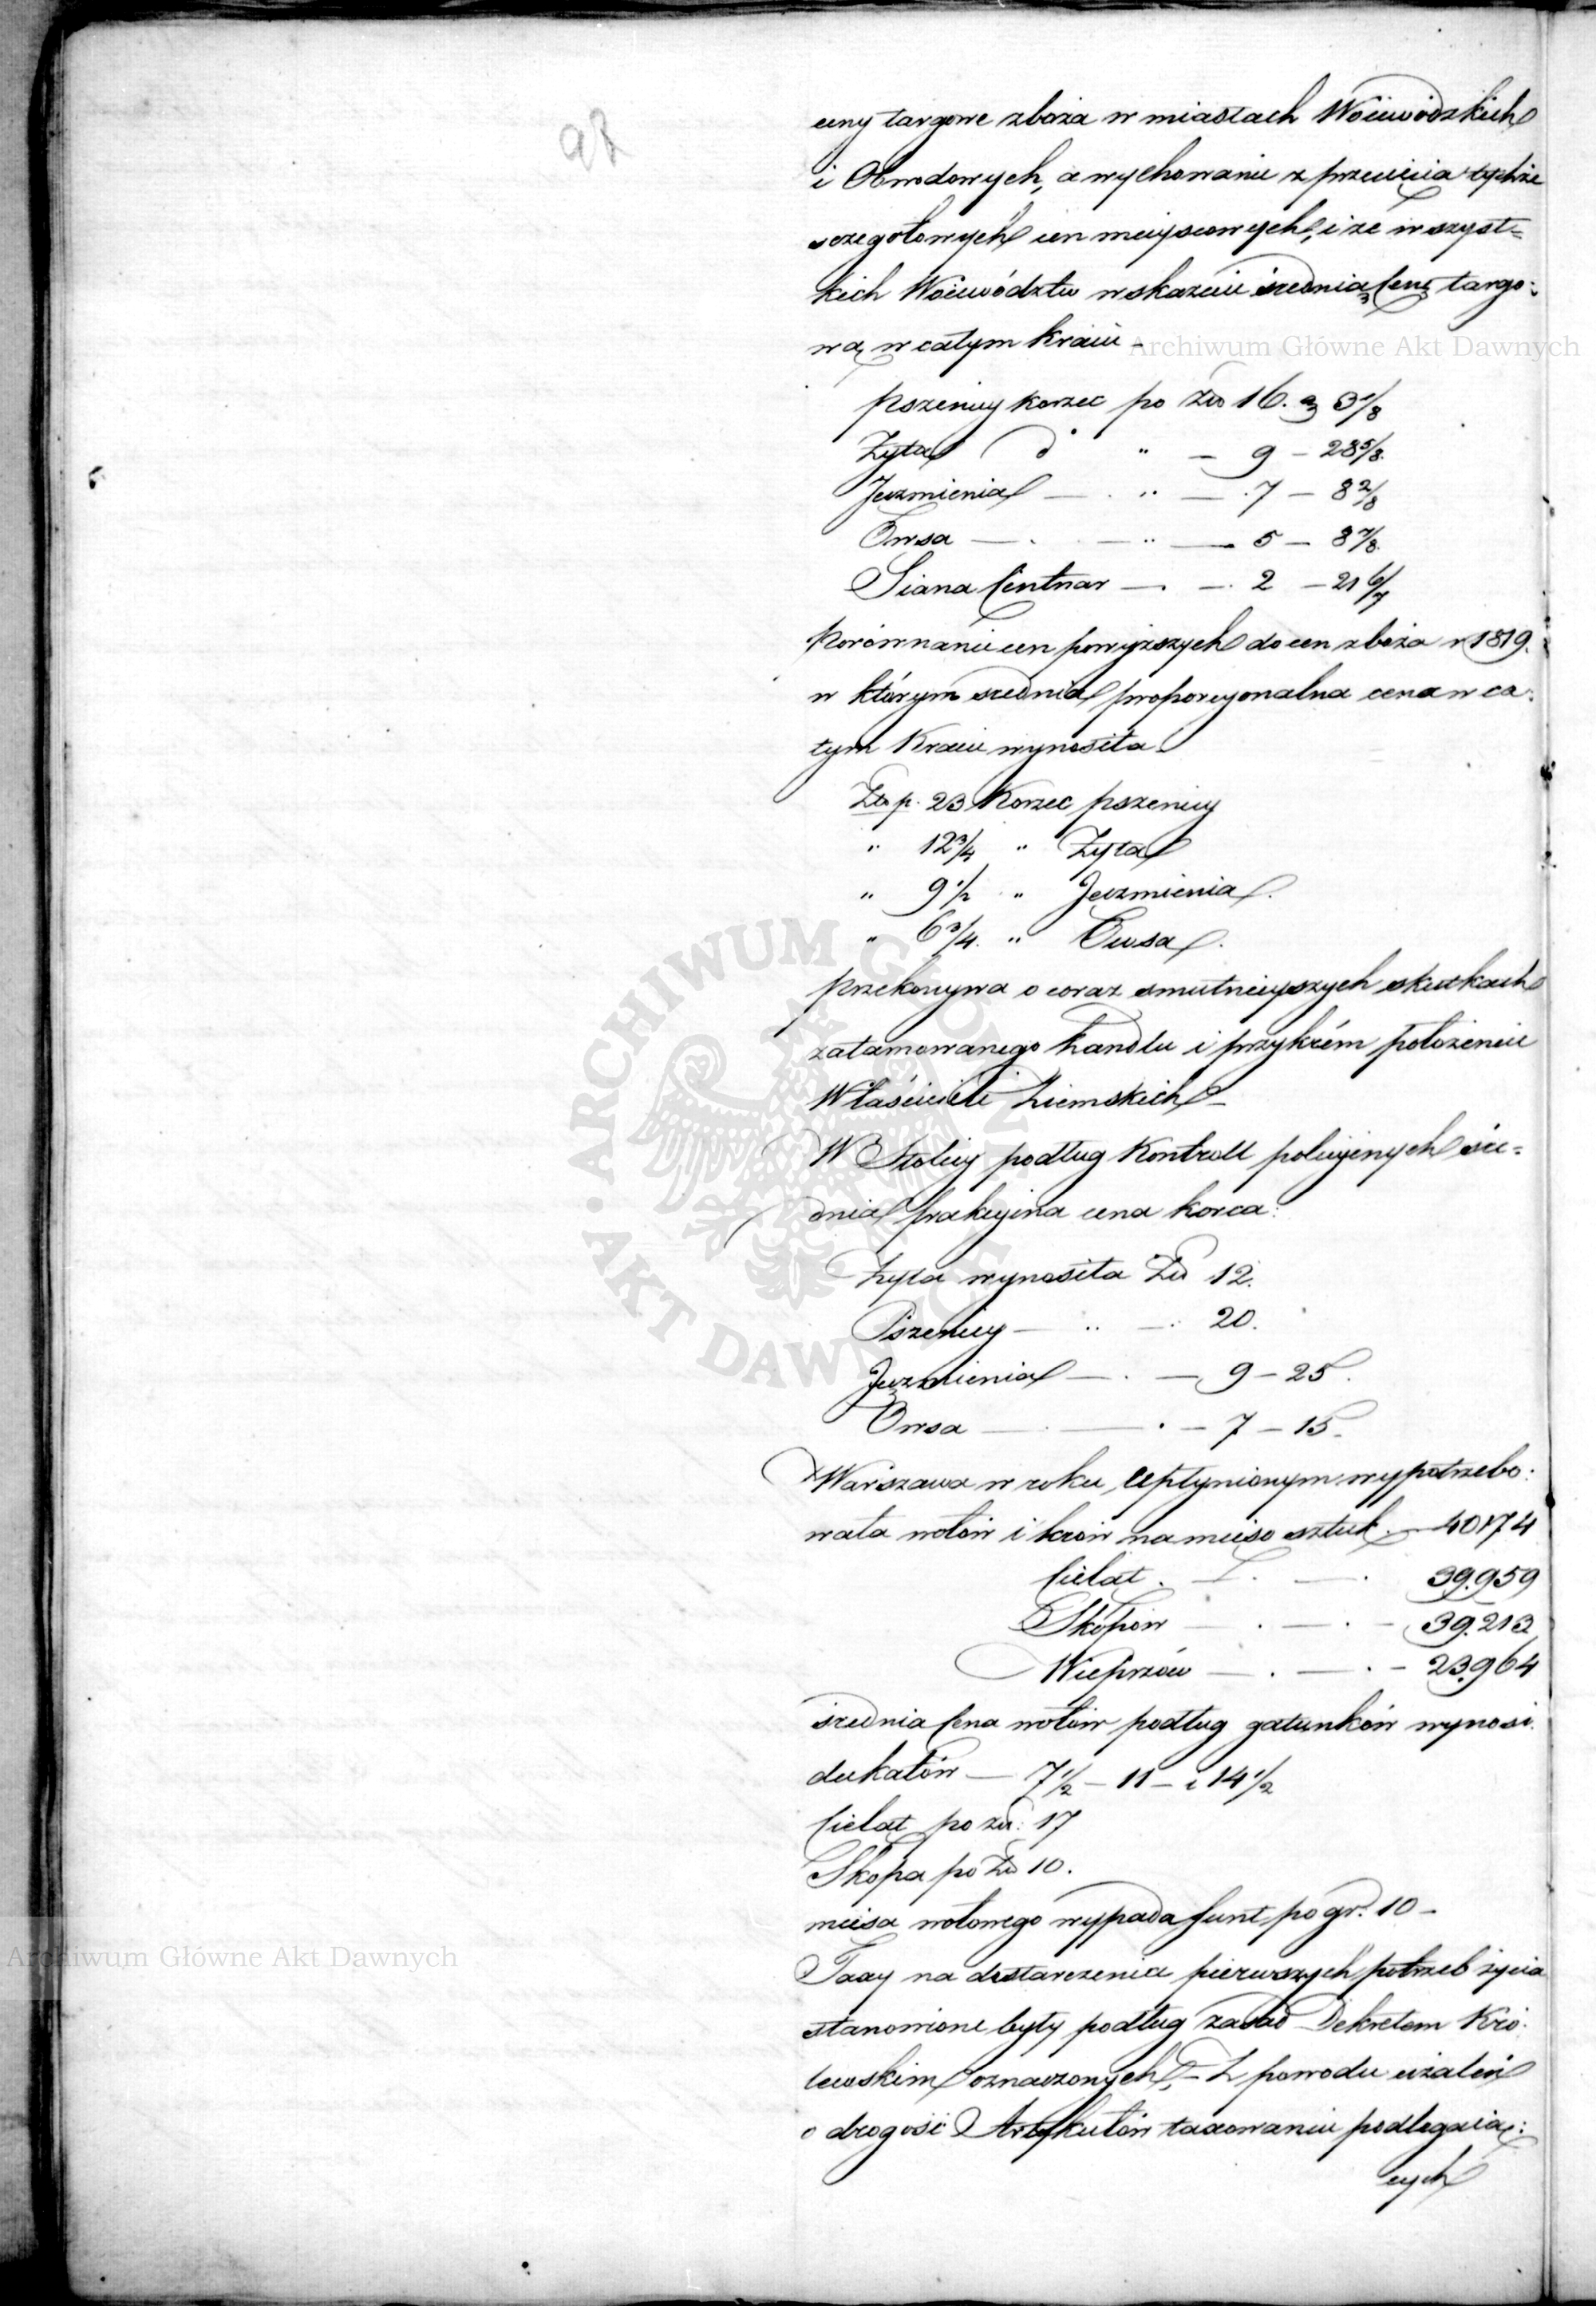 98
ceny targowe zboża w miastach Woiewódzkich
i Obwodowych, a wychowaniu z przecięcia tychże
sczegołowych cen mieyscowych, i ze wszyst=
kich Woiewództw wskazuie srednią cenę targo:
wą w całym kraiu -
Archiwum Główne Akt Dawnych
pszenicy korzec po Złp 16. gr 3 1/8
Żyta d° " - 9 - 28 5/8.
Jęczmienia - " - 7 - 8 2/8
Owsa - " - 5 - 8 7/8.
Siana Centnar - - 2 - 21 6/7
Porównanie cen powyższych do cen zboża r 1819.
w którym srednia proporcyonalna cena w ca:
łym Kraiu wynosiła
Złp. 23 Korzec pszenicy
" 12 3/4 " Żyta
" 9 1/2 " Jęczmienia.
" 6 3/4. " Owsa.
przekonywa o coraz smutnieyszych skutkach
zatamowanego handlu i przykrém położeniu
Właścicieli Ziemskich -
W Stolicy podług Kontroll policyinych śre=
dnia frakcyina cena korca:
Żyta wynosiła Złp 12.
Pszenicy - " - 20.
Jęczmienia - . - 9 - 25.
Owsa - . - 7 - 15.
Warszawa w roku upłynionym wypotrzebo:
wała wołów i krów na mięso sztuk - 40174
Cieląt . - . - . 39.959
Skopów - . - . - 39.213
Wieprzów - . - . - 23.964
średnia Cena wołów podług gatunków wynosi
dukatów - 7 1/2 - 11 - i 14 1/2
Cieląt po zł: 17
Skopa po Zł 10.
mięsa wołowego wypada funt po gr. 10 -
Taxy na dostarczenia pierwszych potrzeb życia
stanowione były podług zasad Dekretem Kró:
lewskim oznaczonych, - Z powodu użaleń
o drogość Artykułów taxowaniu podlegaią:
cych
ARCHIWUM GŁÓWNE · AKT DAWNYCH ·
Archiwum Główne Akt Dawnych